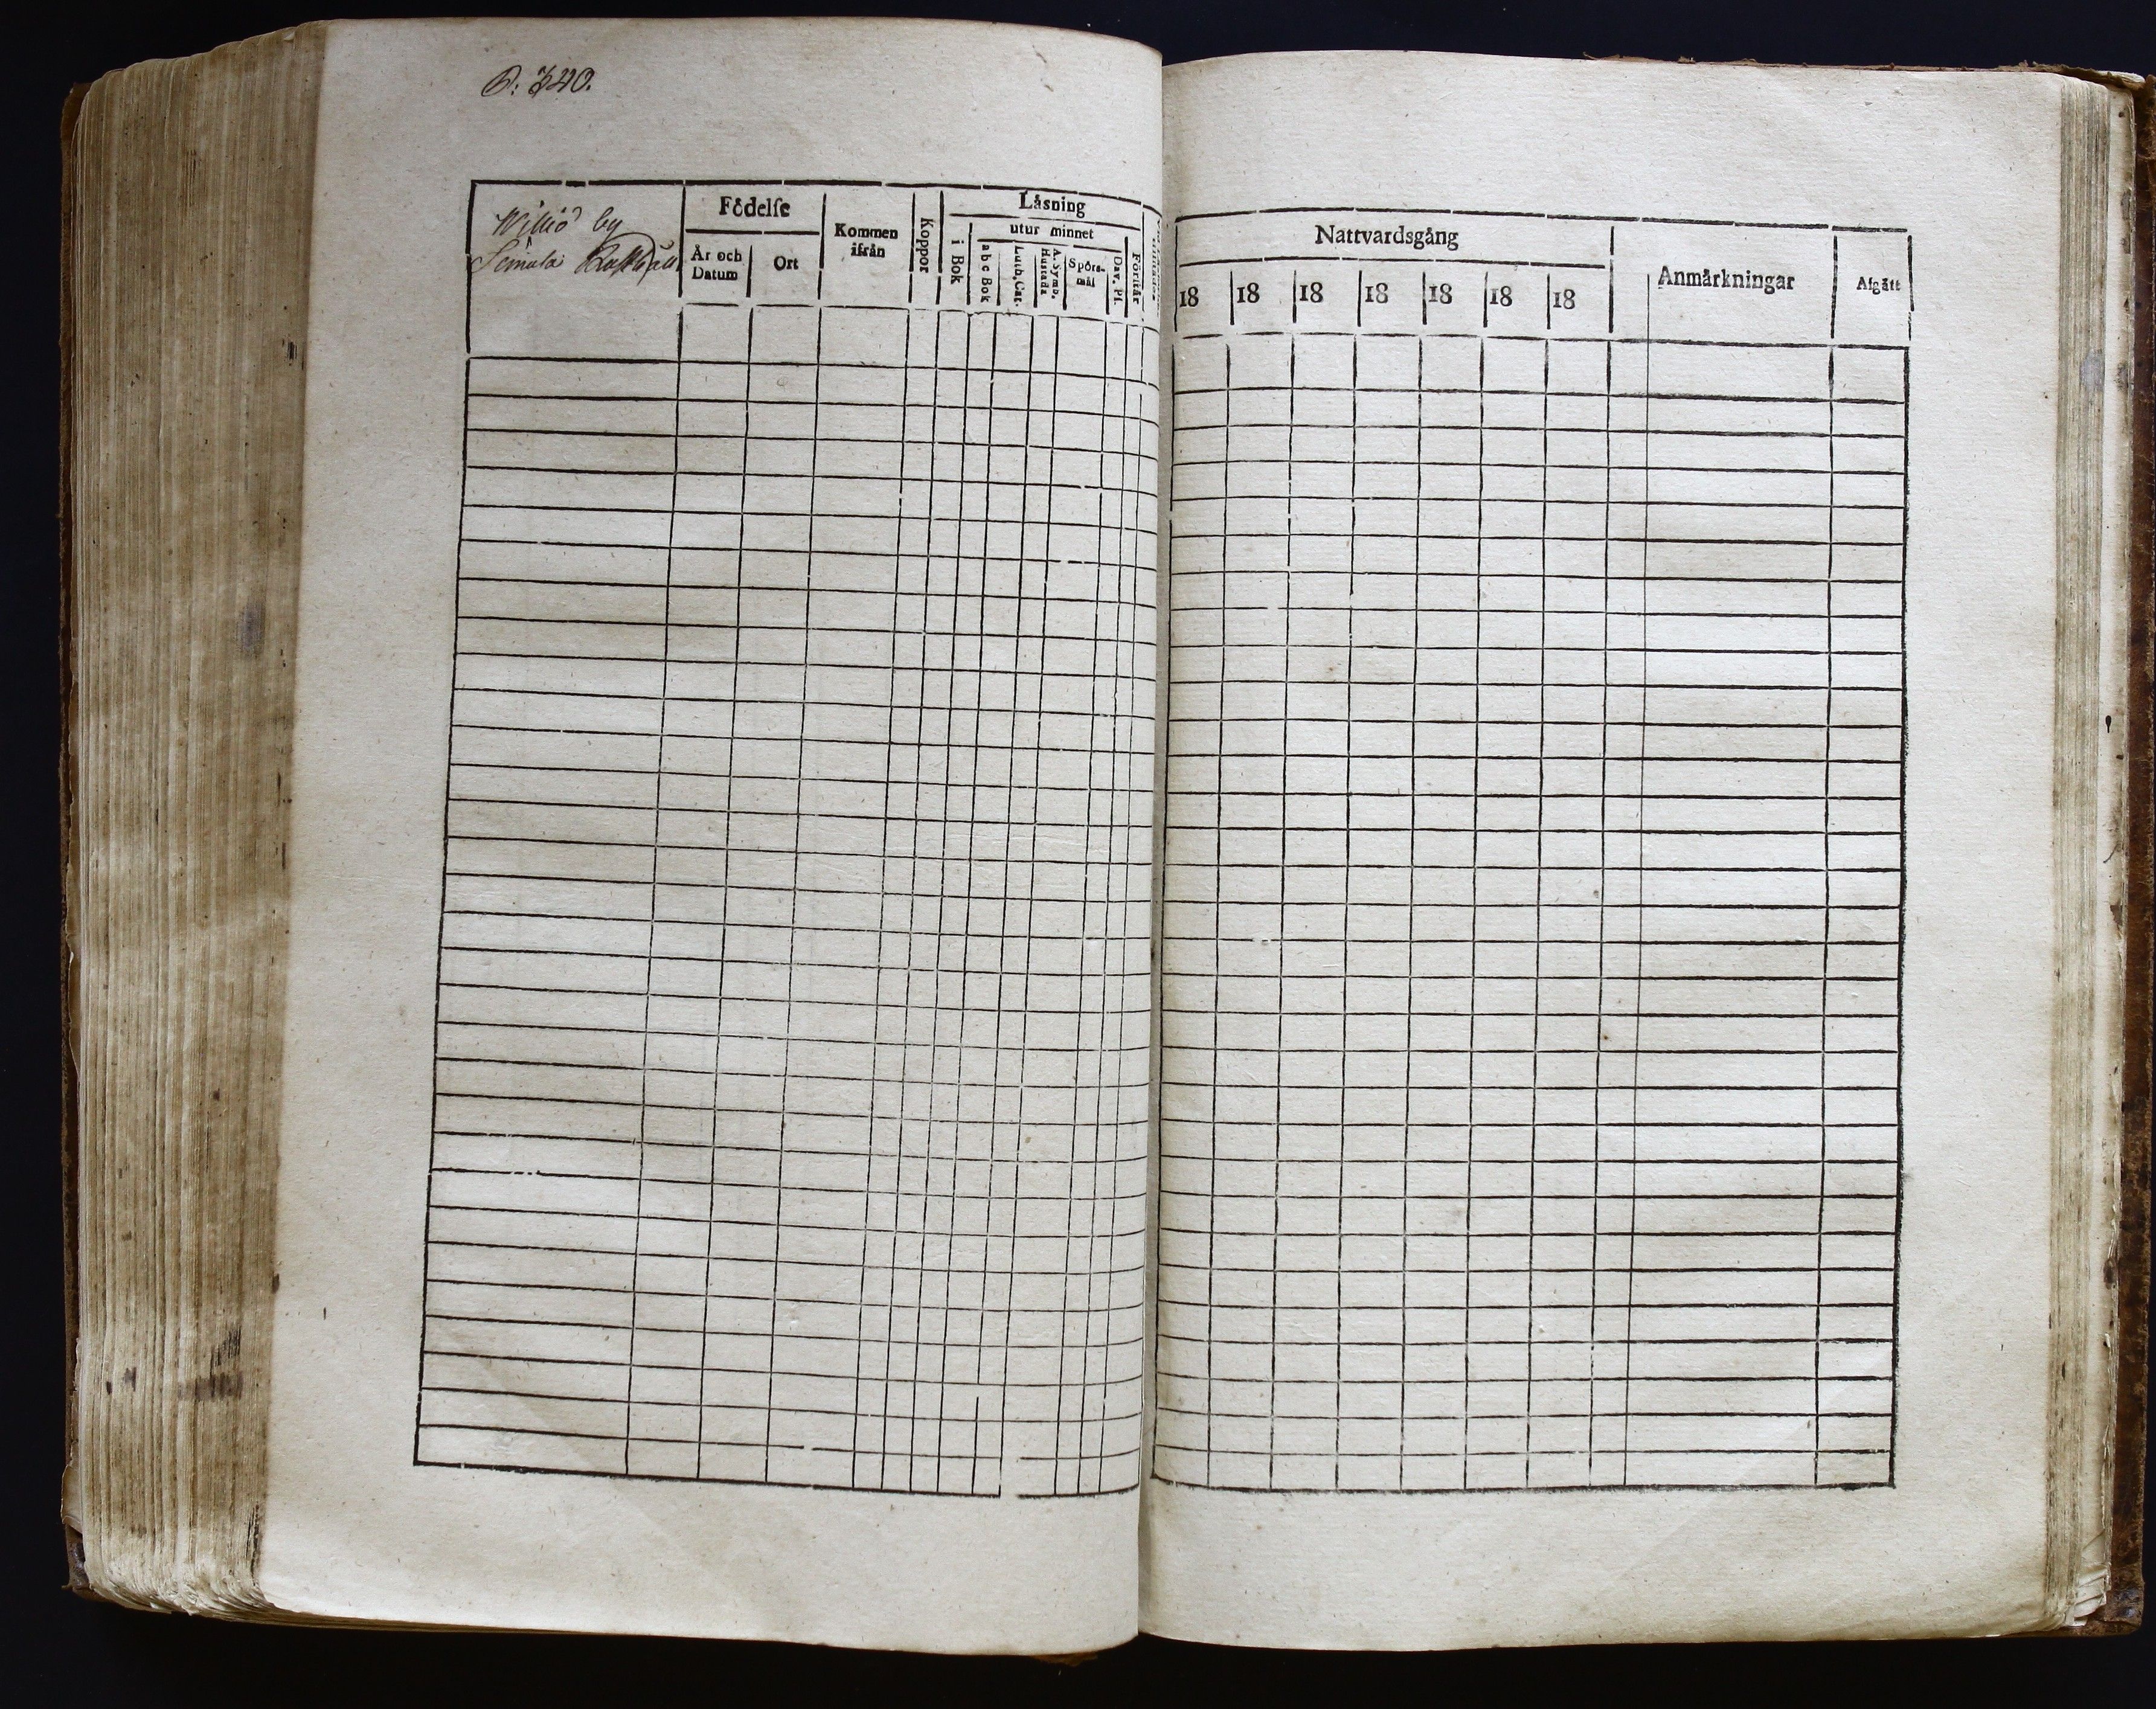 P: 340.
by
Simula
Födelse
År och Datum
Ort
Kommen ifrån
Koppor
Låsning
i Bok
utur minnet
abc Bok
Luth. Cat.
A. Symb. Hustafla
Spörs-mål
Dav. Ps.
Förstår
Nattvardsgång
18 18 18 18 18 18 18
Anmärkningar
Afgått